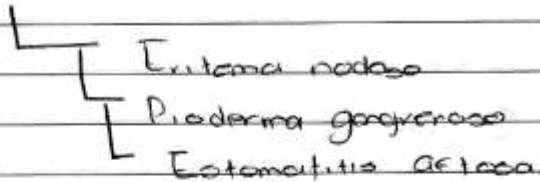 Eritema nodoso
Pioderma gangrenoso
Estomatitis aftosa